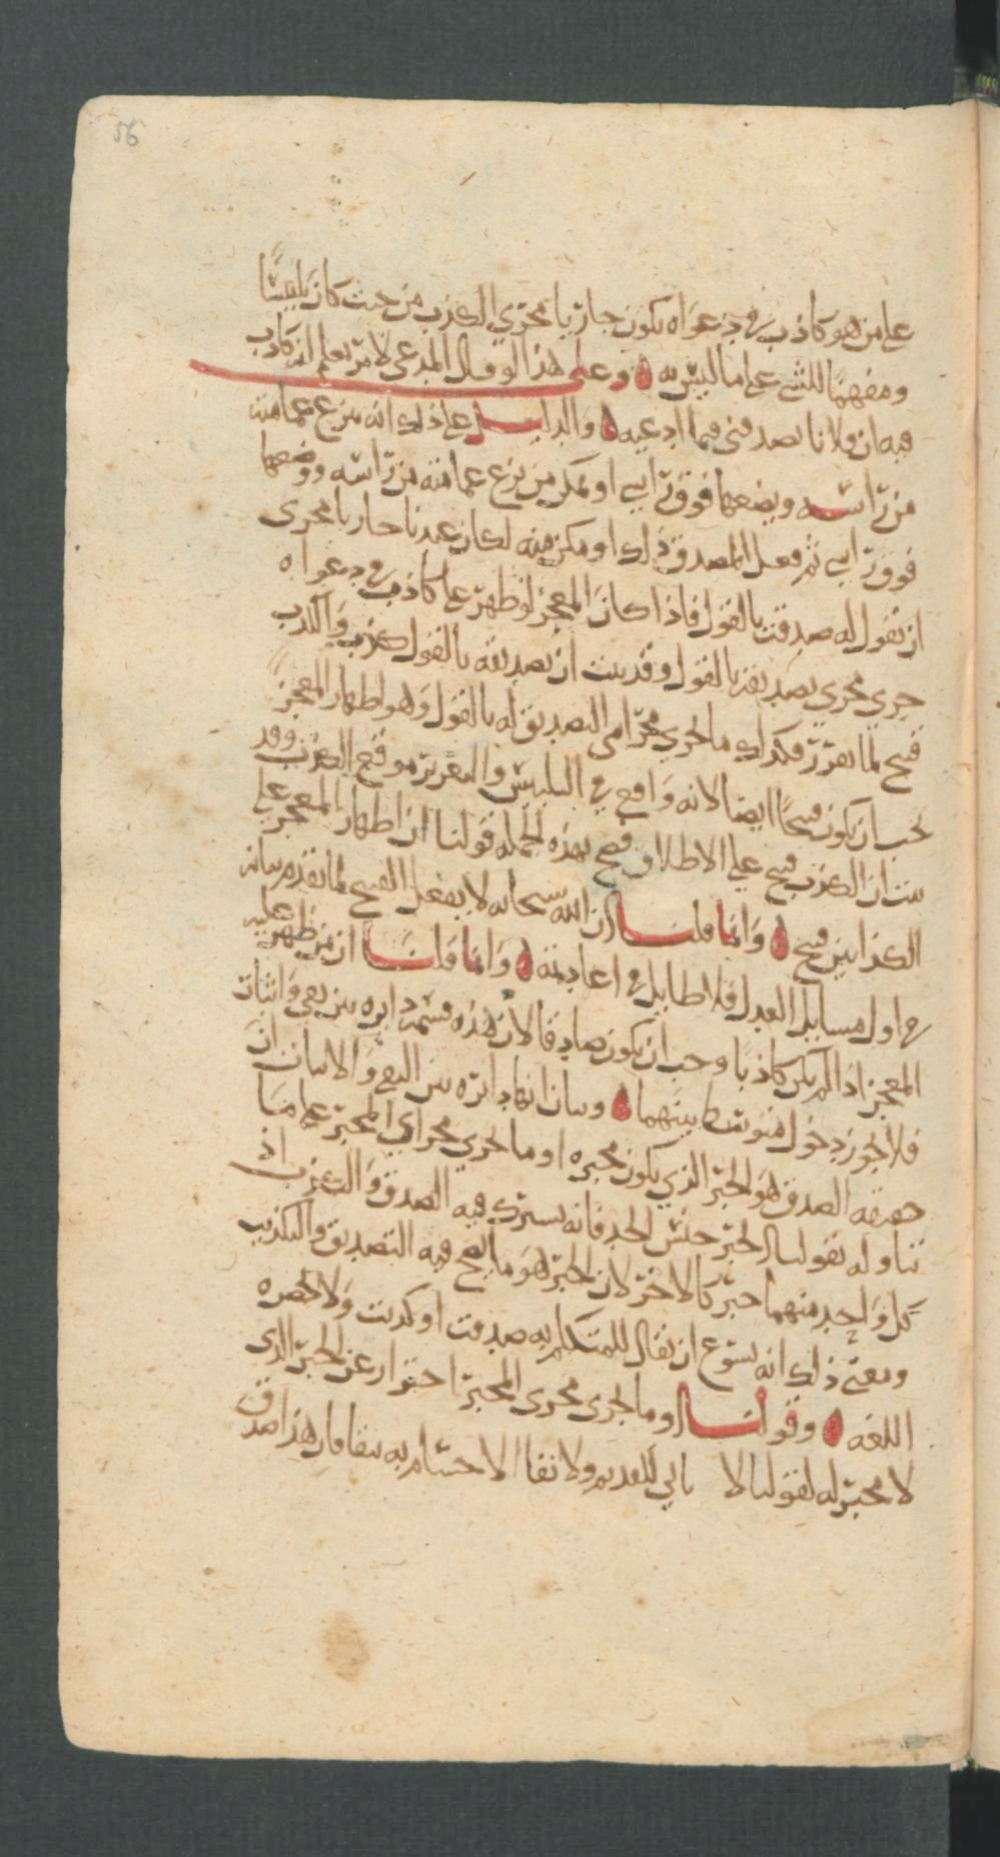 56
على من هو كاذب في دعواه يكون جاريا مجرى الكذب من حيث كان تلبيسًا
ومفهمًا للشي على ما ليس به وعلى هذا لو قال المدعي لامر يعلم انه كاذب
فيه ان فلانا يصدقني فيما ادعيه والدليل على ذلك انه ينزع عمامته
من راسه ويضعها فوق راسي او يمكن من نزع عمامته من راسه ووضعها
فوق راسي ثم فعل المصدق ذلك او مكن منه لكان عندنا جاريا مجرى
ان يقول له صدقت بالقول فاذا كان المعجز لو ظهر على كاذب في دعواه
جرى مجرى تصديقه بالقول وقد بينت ان تصديقه بالقول كذب والكذب
قبيح لما تقرر فكذلك ما يجري مجرى التصديق له بالقول وهو اظهار المعجز
يجب ان يكون قبيحًا ايضا لانه واقع في التلبيس والتغرير موقع الكذب وقد
بينت ان الكذب قبيح على الاطلاق فصح بهذه الجملة قولنا ان اظهار المعجز على
الكذابين قبيح وانما قلنا ان الله سبحانه لا يفعل القبيح لما تقدم بيانه
في اول مسايل العدل فلا طايل في اعادته وانما قلنا ان من ظهر عليه
المعجز اذا لم يكن كاذبًا وجب ان يكون صادقا لان هذه قسمة دايرة بين نفي واثبات
فلا يجوز دخول متوسط بينهما وبيان انها دائرة بين النفي والاثبات ان
حقيقة الصدق هو الخبر الذي يكون مخبره او ما يجري مجراي المخبر على ما
تناوله فقولنا الخبر جنس الحد فانه يشترك فيه الصدق والكذب اذ
كل واحد منهما خبر كالاخر لان الخبر هو ما يصح فيه التصديق والتكذيب
ومعنى ذلك انه يسوغ ان يقال للمتكلم به صدقت او كذبت ولا تحظره
اللغة وقولنا او ما يجري مجرى المخبر احتراز عن الخبر الذي
لا مخبر له كقولنا لا ثاني للقديم ولا بقا الاجسام به